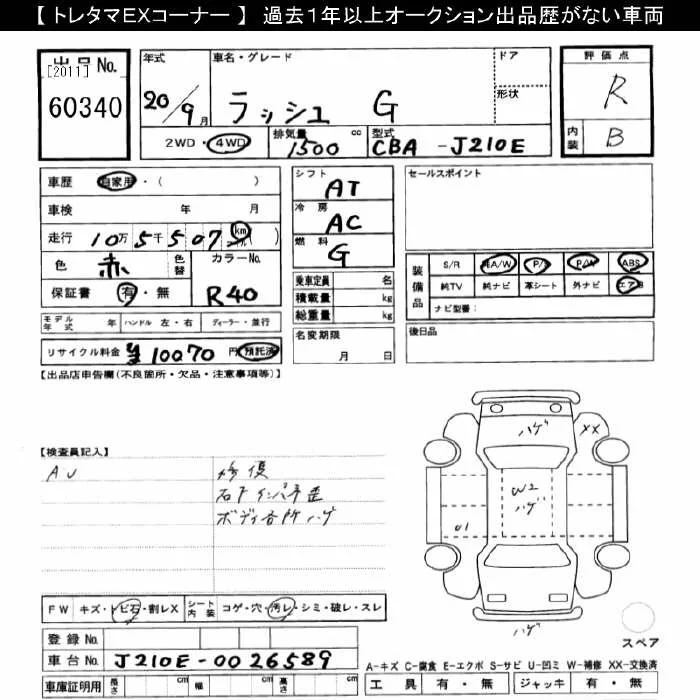 【 トレタマEXコーナー 】 過去1年以上オークション出品歴がない車両
出品No.
[2011]
60340
年式 車名・グレード ドア
20/9月 ラッシュ G 形状
2WD・4WD 排気量 1500 cc 型式 CBA -J210E
評価点
R
内装 B
車歴 自家用・( )
車検 年 月
走行 10万5千507 km
色 赤 色替 カラーNo.
保証書 有・無 R40
モデル年式 年 ハンドル 左・右 ディーラー・並行
リサイクル料金 ¥10070 円 預託済
シフト AT
冷房 AC
燃料 G
乗車定員 名
積載量 kg
総重量 kg
名変期限
月 日
セールスポイント
装備品 S/R 純A/W P/S P/W ABS
純TV 純ナビ 革シート 外ナビ エアB
ナビ型番:
後日品
【出品店申告欄(不良箇所・欠品・注意事項等)】
【検査員記入】
AJ 修復
右F インパネ歪
ボディ各所ハゲ
ハゲ
XX
W2
ハゲ
U1
ハゲ
スペア
FW キズ・トビ石・割レX シート内装 コゲ・穴・汚レ・シミ・破レ・スレ
登録 No.
車台 No. J210E-0026589
車庫証明用 長さ cm 幅 cm 高さ cm
A-キズ C-腐食 E-エクボ S-サビ U-凹ミ W-補修 XX-交換済
工具 有・無 ジャッキ 有・無